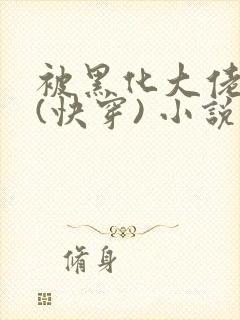 被黑化大佬
(快穿)小說
脩身